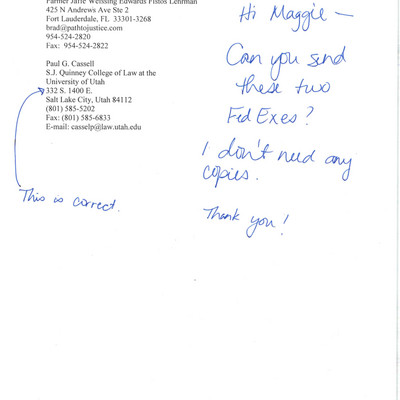 Farmer Jaffe Weissing Edwards Fistos Lehrman
425 N Andrews Ave Ste 2
Fort Lauderdale, FL 33301-3268
brad@pathtojustice.com
954-524-2820
Fax: 954-524-2822
Paul G. Cassell
S.J. Quinney College of Law at the
University of Utah
332 S. 1400 E.
Salt Lake City, Utah 84112
(801) 585-5202
Fax: (801) 585-6833
E-mail: casselp@law.utah.edu
This is correct.
Hi Maggie –
Can you send
these two
FedExes?
I don't need any
copies.
Thank you!